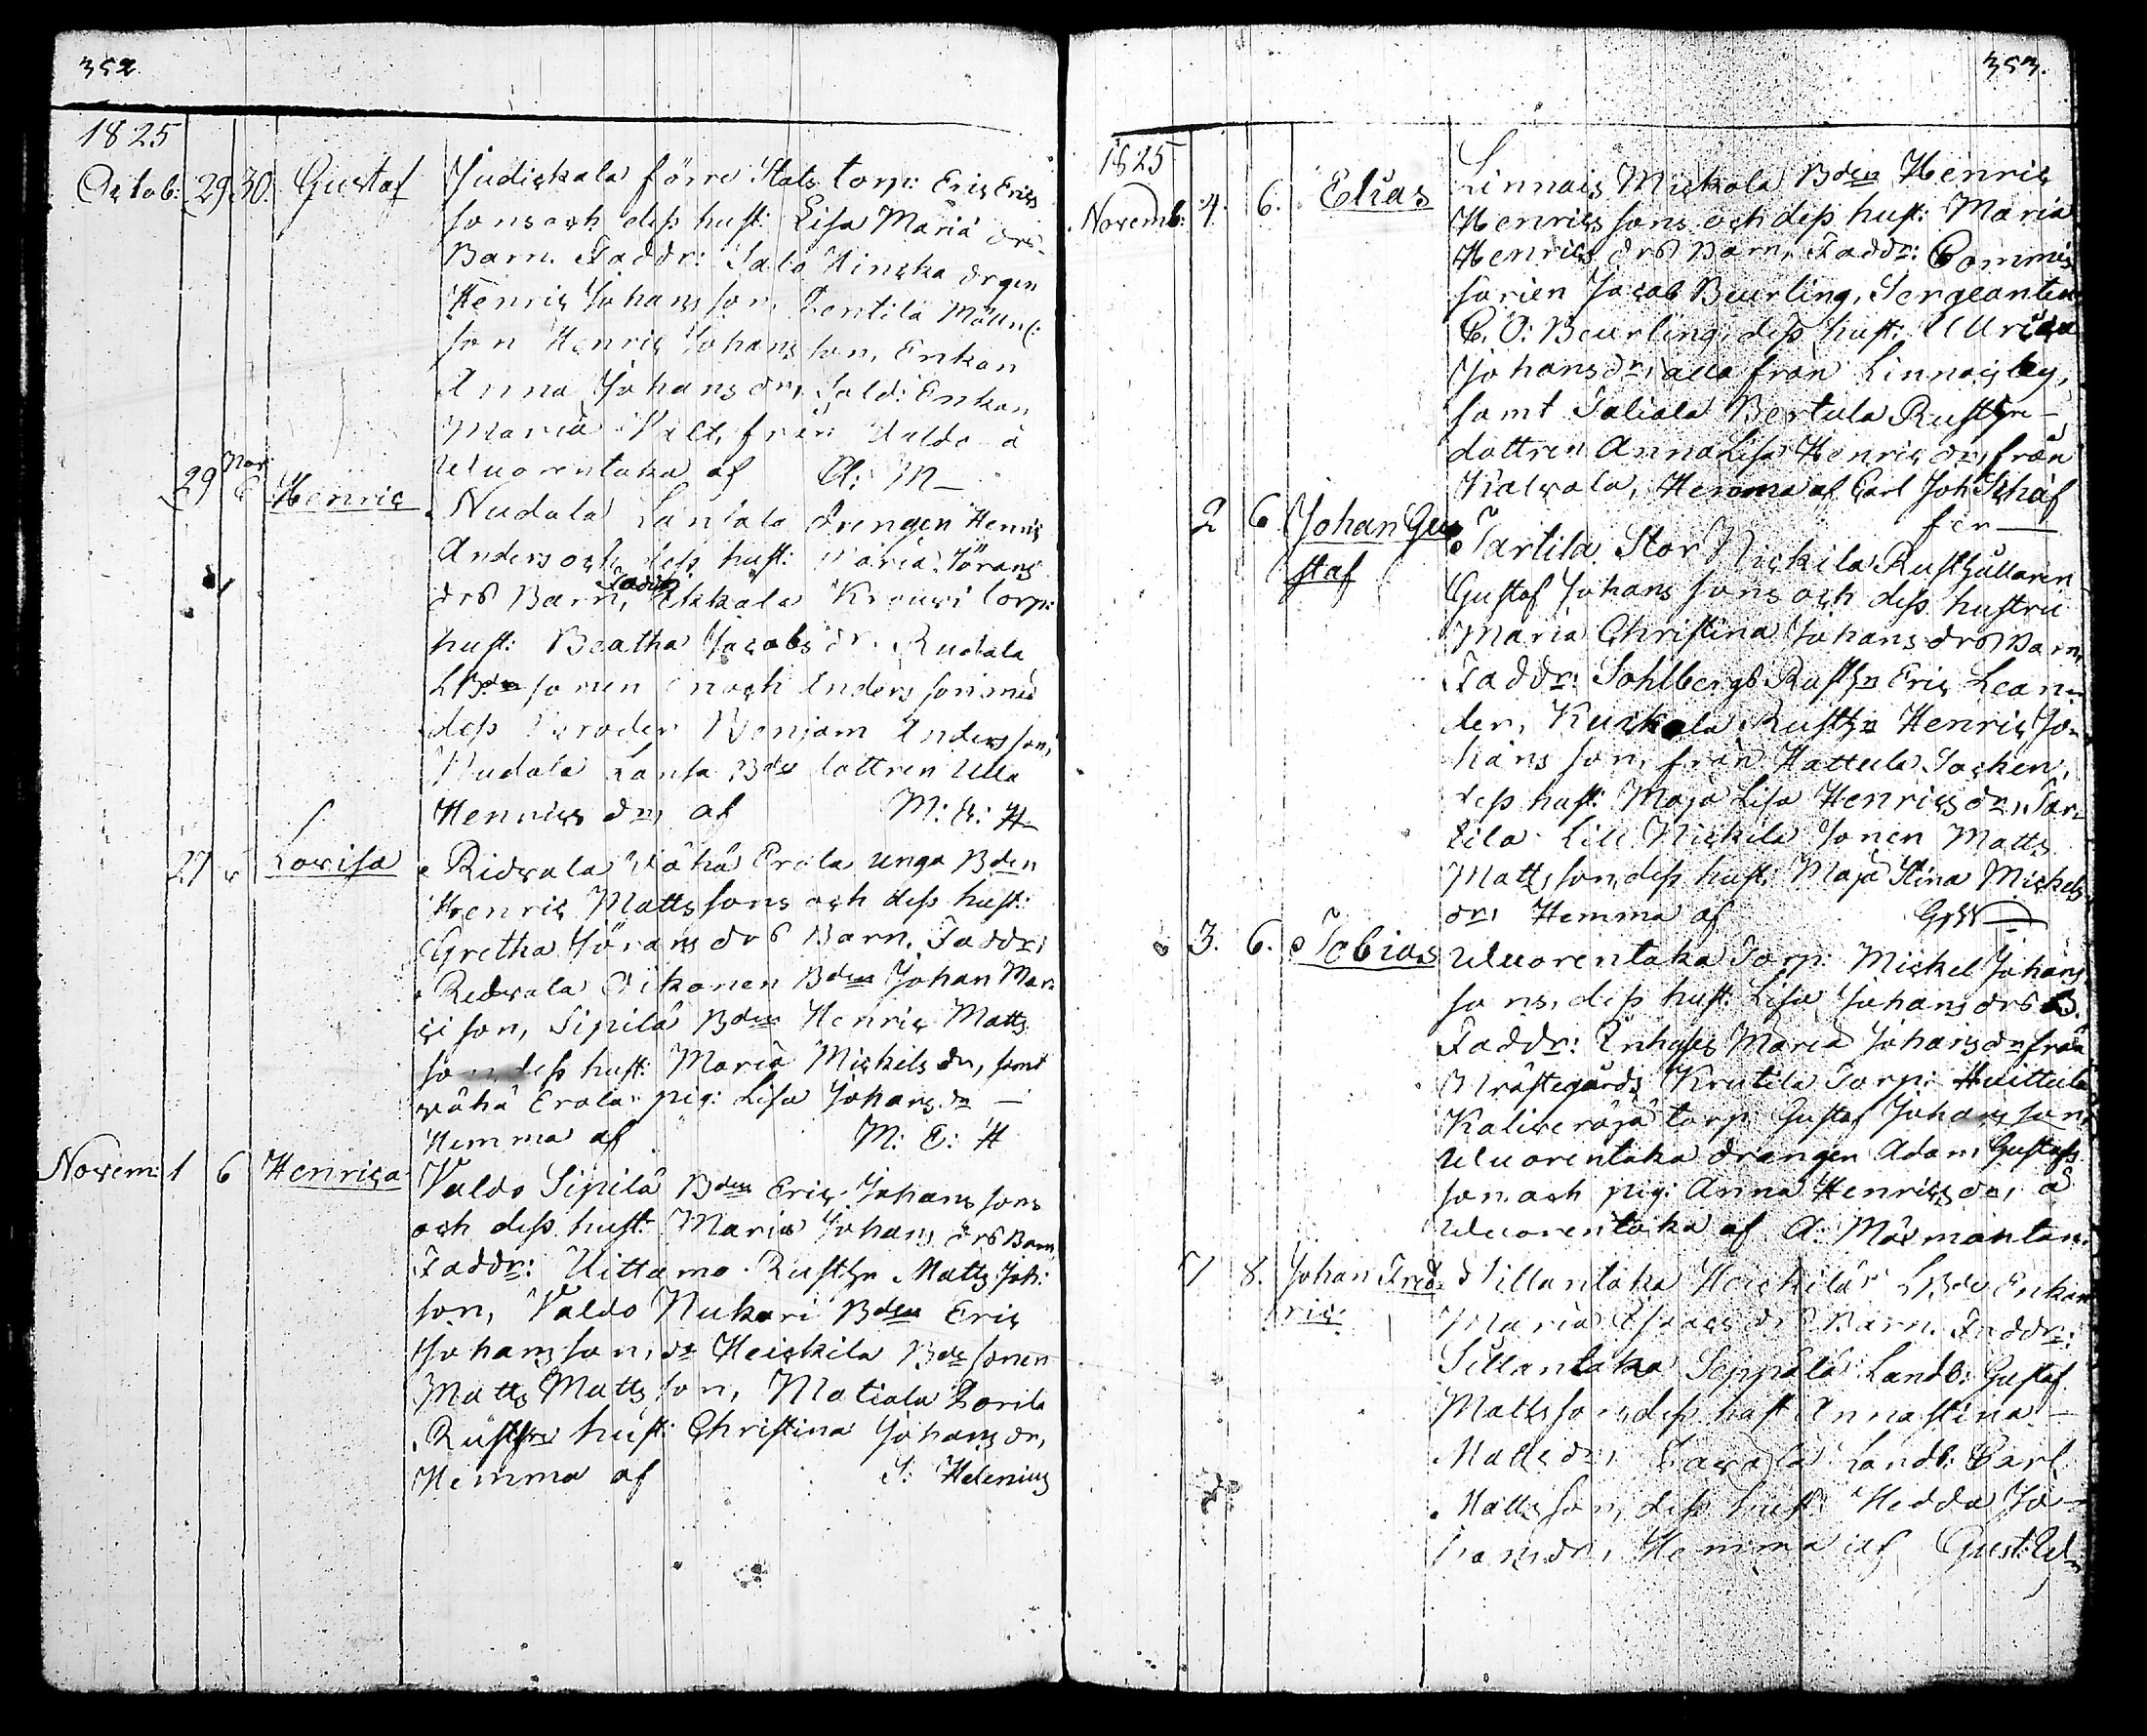 352
1825
Octob: 29 30. Gustaf Judickala förre Stals torp: Eric Erics
sons och dess hust: Lisa Maria drs
Barn. Faddr: Salo Hincka drgen
Henric Johansson, Mölln:
son Henric Johansson, Enkan
Anna Johansdr, Sold: Enkan
Maria från Uldo å
Uluorentaka af A: M—
29 Nov 6 Henric Nudala Lantala drengen Henric
Anders och dess hust: Maria Jörans
drs Barn, Faddr: Krouvi torp:
hust: Beatha Jacobsdr. Rudala
LBde sonen Enoch Andersson med
dess broder Benjam Andersson,
Nudala Lanta Bde dottren Ulla
Henricsdr, af M: E: H—
27 6 Lovisa Ridvala Wähä Erola unga Bden
Henric Mattssons och dess hust:
Gretha Jörans drs Barn. Faddr:
Ridvala Oikonen Bden Johan Mar
ci son, Sipilä Bden Henric Matts
son dess hust: Maria Mickelsdr, samt
wähä Erola pig: Lisa Johansdr —
Hemma af M: E: H
Novem: 1 6 Henrica Valdo Sipilä Bden Eric Johanssons
och dess hust: Maria Johans drs Barn
Faddr: Uittamo Rusthn Matts Joh:
son, Valdo Nukari Bden Eric
Johansson, dr Heickila Bde sonen
Matts Mattsson, Matiala
Rusth hust: Christina Johansdr,
Hemma af J: Helenius
353.
1825
Novemb: 4. 6. Elias Linnais Mickola Bden Henric
Henricssons och dess hust: Maria
Henrics drs Barn, Faddr: Commis
sarien Jacob Beurling, Sergeanten
C. O: Beurling, dess hust: Ulrica
Johansdr, alla från Linnais by,
samt Saliala Bertula Rusth
dottren Anna Lisa Henricsdr, från
Kalvala, Hemma af Carl Joh Schaf
fer—
2 6 Johan Gus Tartila Stor Nickila Rusthållaren
staf Gustaf Johanssons och dess hustru
Maria Christina Johans drs Barn,
Faddr: Sohlbergs Rusthn Eric Lean
der, Kuickola Rusthn Henric Jo
hans son, från Hattula Socken,
dess hust: Maja Lisa Henricsdr, Tar
tila Lill Nickila sonen Matts
Mattsson, dess hust: Maja Stina Mickels
dr, Hemma af
3. 6. Tobias Uluorentaka Torp: Mickel Johans
sons, dess hust: Lisa Johans drs B.
Faddr: Inhyses Maria Johansdr från
Prästegårds Krutila Torp: Huittula
torp: Gustaf Johansson,
Uluorentaka drängen Adam Gustafs
son och pig: Anna Henricsdr, å
Uluorentaka af A: Malmonten.
7 8. Johan Fred Sillantaka Heickilä LBde Enkan
ric Maria drs Barn. Faddr:
Sillantaka Seppälä Landb: Gustaf
Mattsson, dess hust Anna Stina
Mattsdr, Landb: Carl
Mattsson, dess hust: Hedda Jo
hansdr, Hemma af Gust: